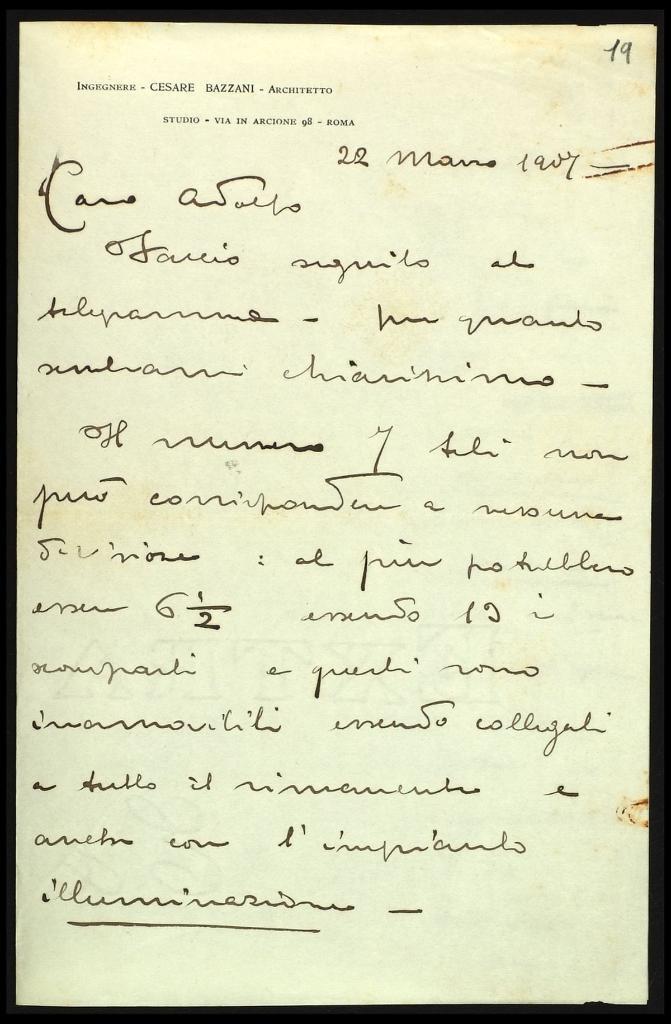 19
INGEGNERE - CESARE BAZZANI - ARCHITETTO
STUDIO - VIA IN ARCIONE 98 - ROMA
22 Marzo 1907
Caro Adolfo
Faccio seguito al
telegramma - per quanto
sembrami chiarissimo -
Il numero 7 teli non
può corrispondere a nessuna
divisione : al più potrebbero
essere 6 1/2 essendo 13 i
scomparti e questi sono
inamovibili essendo collegati
a tutto il rimanente e
anche con l'impianto
illuminazione -